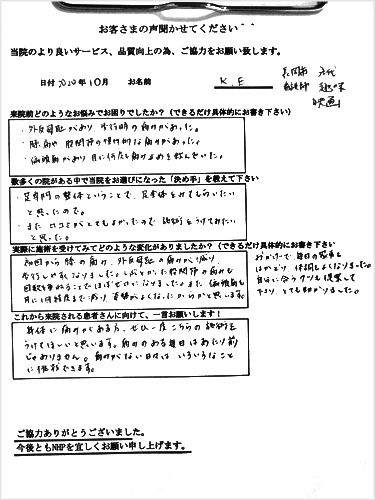 お客さまの声聞かせてください^^
当院のより良いサービス、品質向上の為、ご協力をお願い致します。
日付 2020年10月 お名前 K.E
長岡市
看護師
50代
趣味
映画
来院前どのようなお悩みでお困りでしたか?(できるだけ具体的にお書き下さい)
・外反母趾があり、歩行時の痛みがあった。
・膝痛や股関節の慢性的な痛みがあった。
・偏頭痛があり月に何度も痛み止めを飲んでいた。
数多くの院がある中で当院をお選びになった「決め手」を教えて下さい
・足専門の整体ということで、足全体をみてもらいたい
と思ったので。
・また口コミがとてもよかったので施術をうけてみたい
と思った。
実際に施術を受けてみてどのような変化がありましたか?(できるだけ具体的にお書き下さい)
初回から膝の痛み、外反母趾の痛みが減り、
歩行しやすくなりました。しぶとかった股関節の痛みも
回数を重ねることでほぼゼロになりました。また偏頭痛も
月に1回程度まで減り、首肩がよくなったからかと思います。
おかげで、毎日の家事も
はかどり、仕事もしやすくなりました。
自分に合うクツも提案して
下さり、とても助かりました。
これから来院される患者さんに向けて、一言お願いします!
身体に痛みがある方、ぜひ一度こちらの施術を
うけてほしいと思います。痛みのある毎日はあたり前
じゃありません。痛みがない日々は、いろいろなこと
に挑戦できます。
ご協力ありがとうございました。
今後ともNHPを宜しくお願い申し上げます。